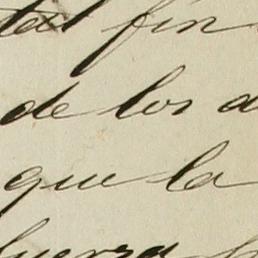 tal fin
de los a
que la
fuerza